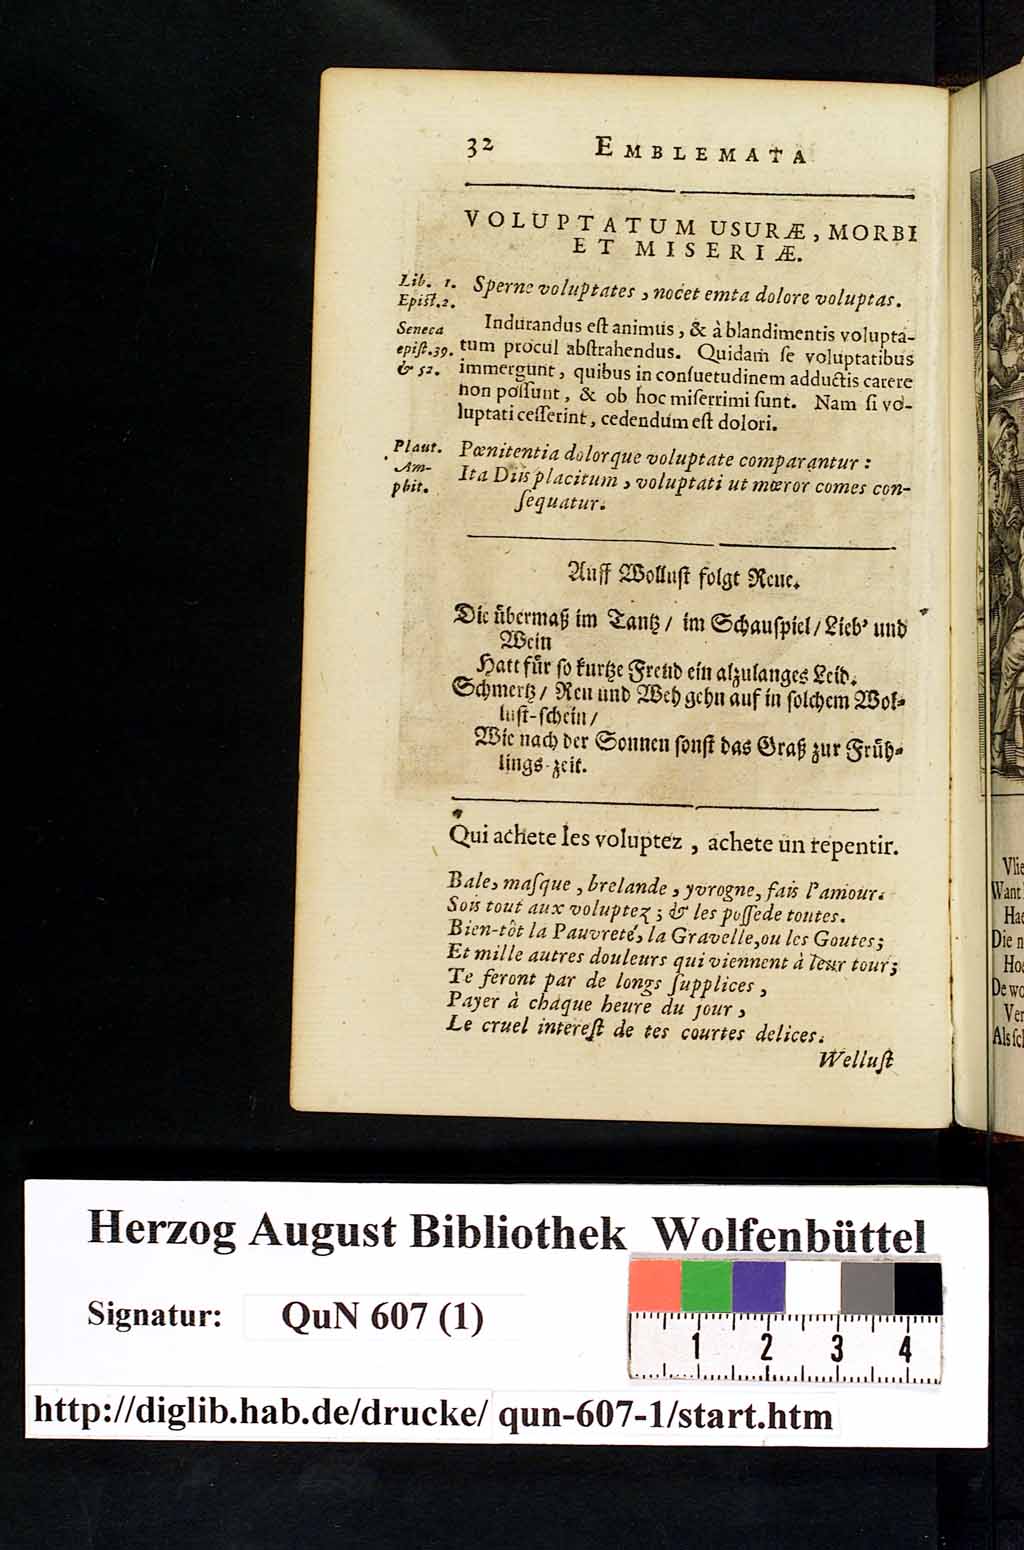 32 EMBLEMATA
VOLUPTATUM USURÆ, MORBI
ET MISERIÆ.
Lib. 1.
Epist. 2.
Sperne voluptates, nocet emta dolore voluptas.
Seneca
epist. 39.
& 52.
Indurandus est animus, & à blandimentis volupta-
tum procul abstrahendus. Quidam se voluptatibus
immergunt, quibus in consuetudinem adductis carere
non possunt, & ob hoc miserrimi sunt. Nam si vo-
luptati cesserint, cedendum est dolori.
Plaut.
Am-
phit.
Pœnitentia dolorque voluptate comparantur:
Ita Diis placitum, voluptati ut mœror comes con-
sequatur.
Auff Wollust folgt Reue.
Die übermaß im Tantz / im Schauspiel / Lieb' und
Wein
Hatt für so kurtze Freud ein alzulanges Leid.
Schmertz / Reu und Weh gehn auf in solchem Wol-
lust-schein /
Wie nach der Sonnen sonst das Graß zur Früh-
lings-zeit.
Qui achete les voluptez, achete un repentir.
Bale, masque, brelande, yvrogne, fais l'amour.
Sois tout aux voluptez; & les possede toutes.
Bien-tôt la Pauvreté, la Gravelle, ou les Goutes;
Et mille autres douleurs qui viennent à leur tour;
Te feront par de longs supplices,
Payer à chaque heure du jour,
Le cruel interest de tes courtes delices.
Wellust
Vlie
Want
Hae
Die n
Hoe
De wo
Ver
Als sch
Herzog August Bibliothek Wolfenbüttel
Signatur: QuN 607 (1)
1 2 3 4
http://diglib.hab.de/drucke/ qun-607-1/start.htm